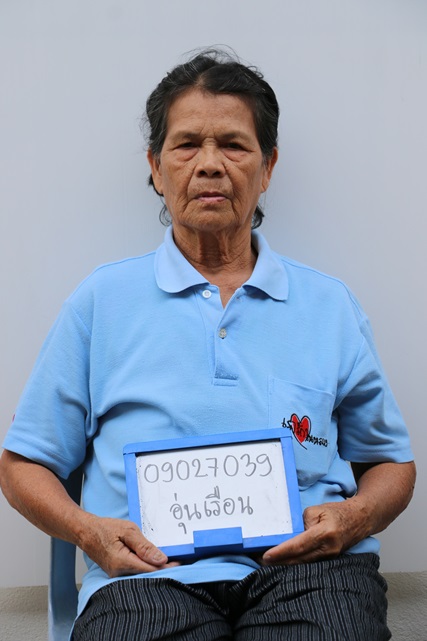 09027039
อุ่นเรือน